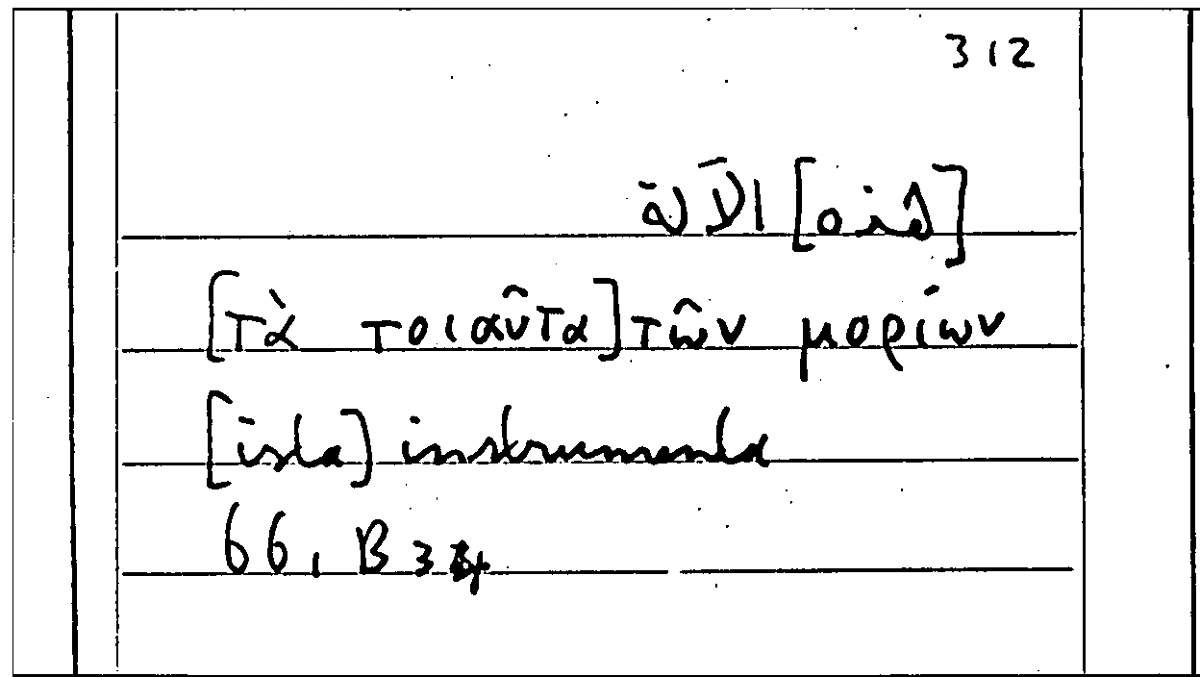 312
[هذه] الآلة
[τὰ τοιαῦτα] τῶν μορίων
[ista] instrumenta
66, B